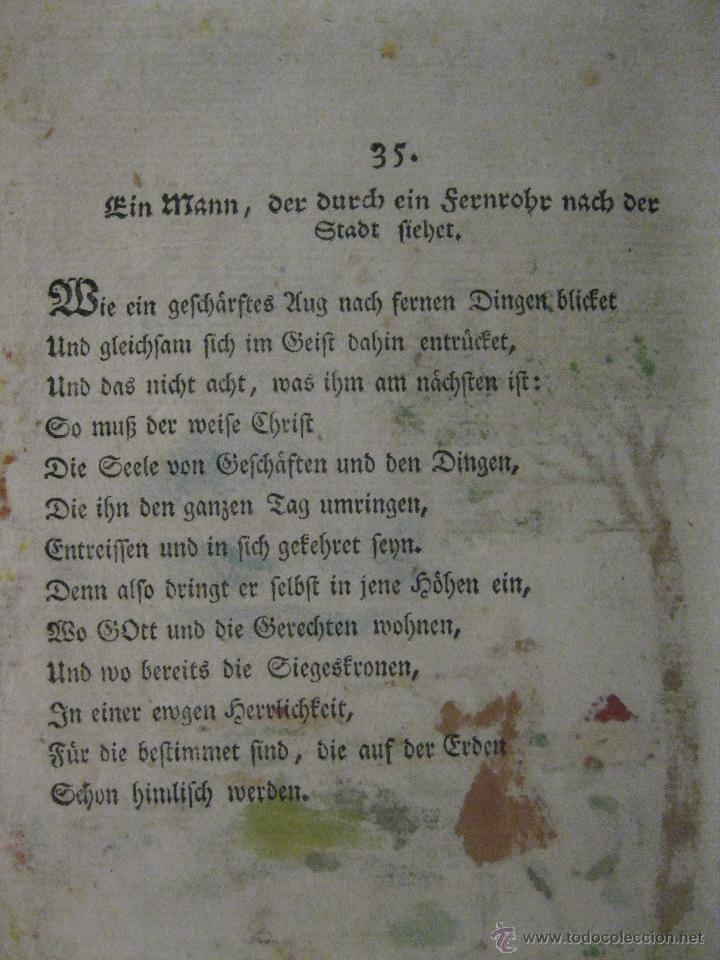 35.
Ein Mann, der durch ein Fernrohr nach der
Stadt siehet.
Wie ein geschärftes Aug nach fernen Dingen blicket
Und gleichsam sich im Geist dahin entrücket,
Und das nicht acht, was ihm am nächsten ist:
So muß der weise Christ
Die Seele von Geschäften und den Dingen,
Die ihn den ganzen Tag umringen,
Entreissen und in sich gekehret seyn.
Denn also dringt er selbst in jene Höhen ein,
Wo GOtt und die Gerechten wohnen,
Und wo bereits die Siegeskronen,
In einer ewgen Herrlichkeit,
Für die bestimmet sind, die auf der Erden
Schon himlisch werden.
www.todocoleccion.net